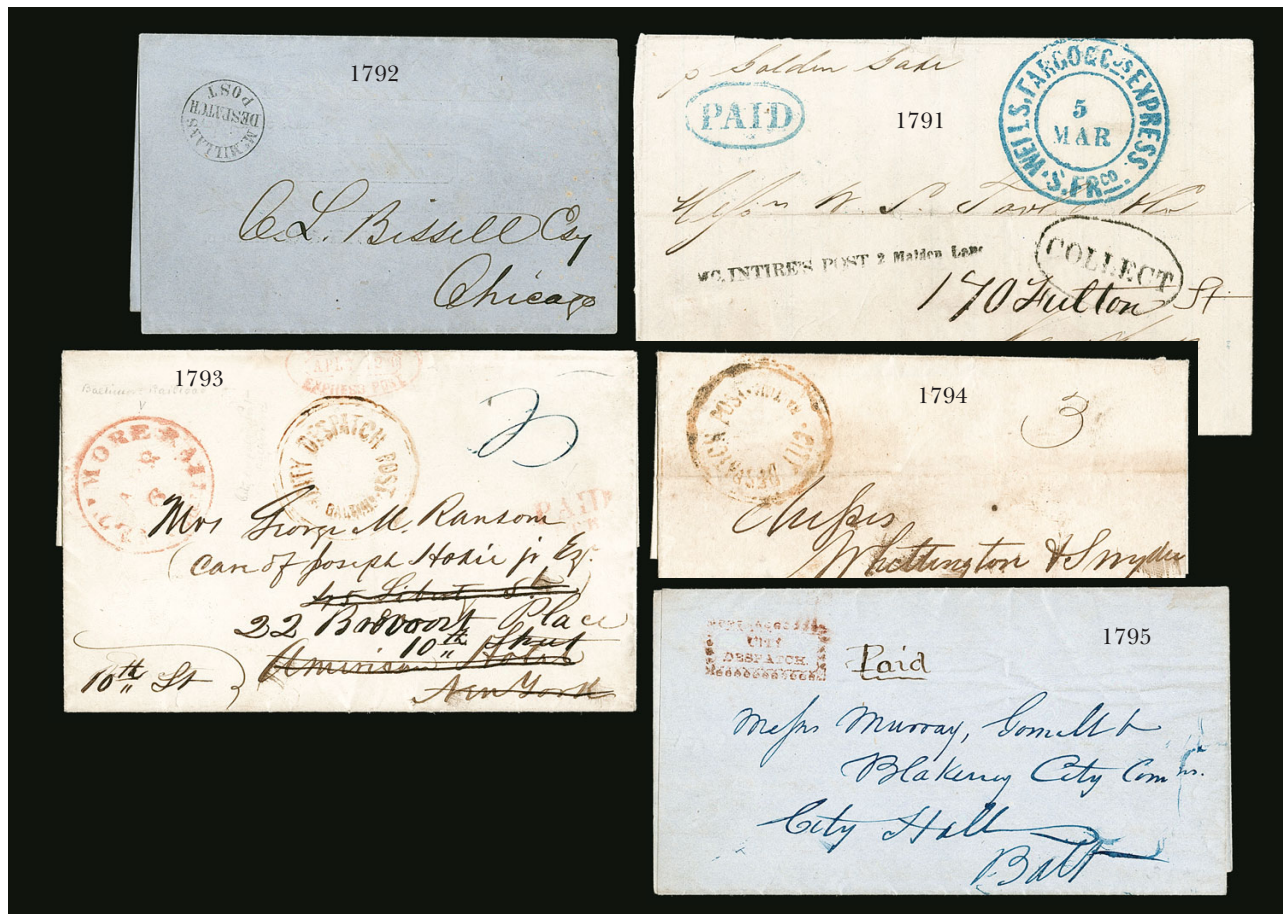 1792
McMILLAN'S
DESPATCH
POST
C. L. Bissell Esq
Chicago
p Golden Gate
PAID
1791
WELLS, FARGO & Co's EXPRESS
5
MAR
S. FRco.
W. S.
MC.INTIRE'S POST 2 Maiden Lane
COLLECT
170 Fulton St
1793
EXPRESS POST
MORE RAIL
CITY DESPATCH POST
PAID
Mrs George M. Ransom
Care of Joseph Hoxie jr Esq.
22 Brevoort Place
10th Street
American Hotel
10th St
New York
1794
CITY DESPATCH POST
3
Messrs
Whittington & Snyder
1795
CITY
DESPATCH.
Paid
Messrs Murray,
Blakeney City Comrs.
City Hall
Balt